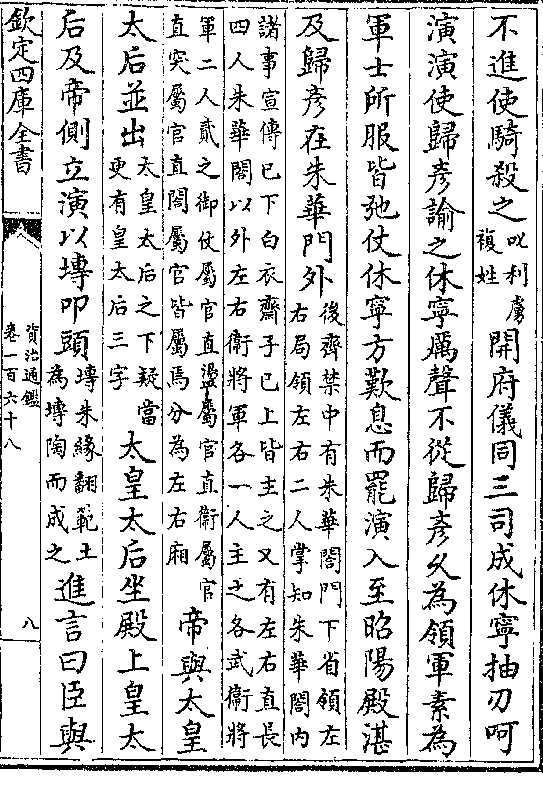 不進使騎殺之叱利虜複姓開府儀同三司成休寧抽刃呵
演演使歸彥諭之休寧厲聲不從歸彥久為領軍素為
軍士所服皆弛仗休寧方歎息而罷演入至昭陽殿湛
及歸彥在朱華門外
後齊禁中有朱華閤門下省領左
右局領左右二人掌知朱華閤内
諸事宣傳已下白衣齋子已上皆主之又有左右直長
四人朱華閤以外左右衛將軍各一人主之各武衛將
軍二人貳之御仗屬官直盪屬官直衛屬官
直突屬官直閤屬官皆屬焉分為左右廂
帝與太皇
太后並出
太皇太后之下疑當
更有皇太后三字
太皇太后坐殿上皇太
后及帝側立演以塼叩頭
塼朱緣翻範土
為塼陶而成之
進言曰臣與
欽定四庫全書
資治通鑑
卷一百六十八
八